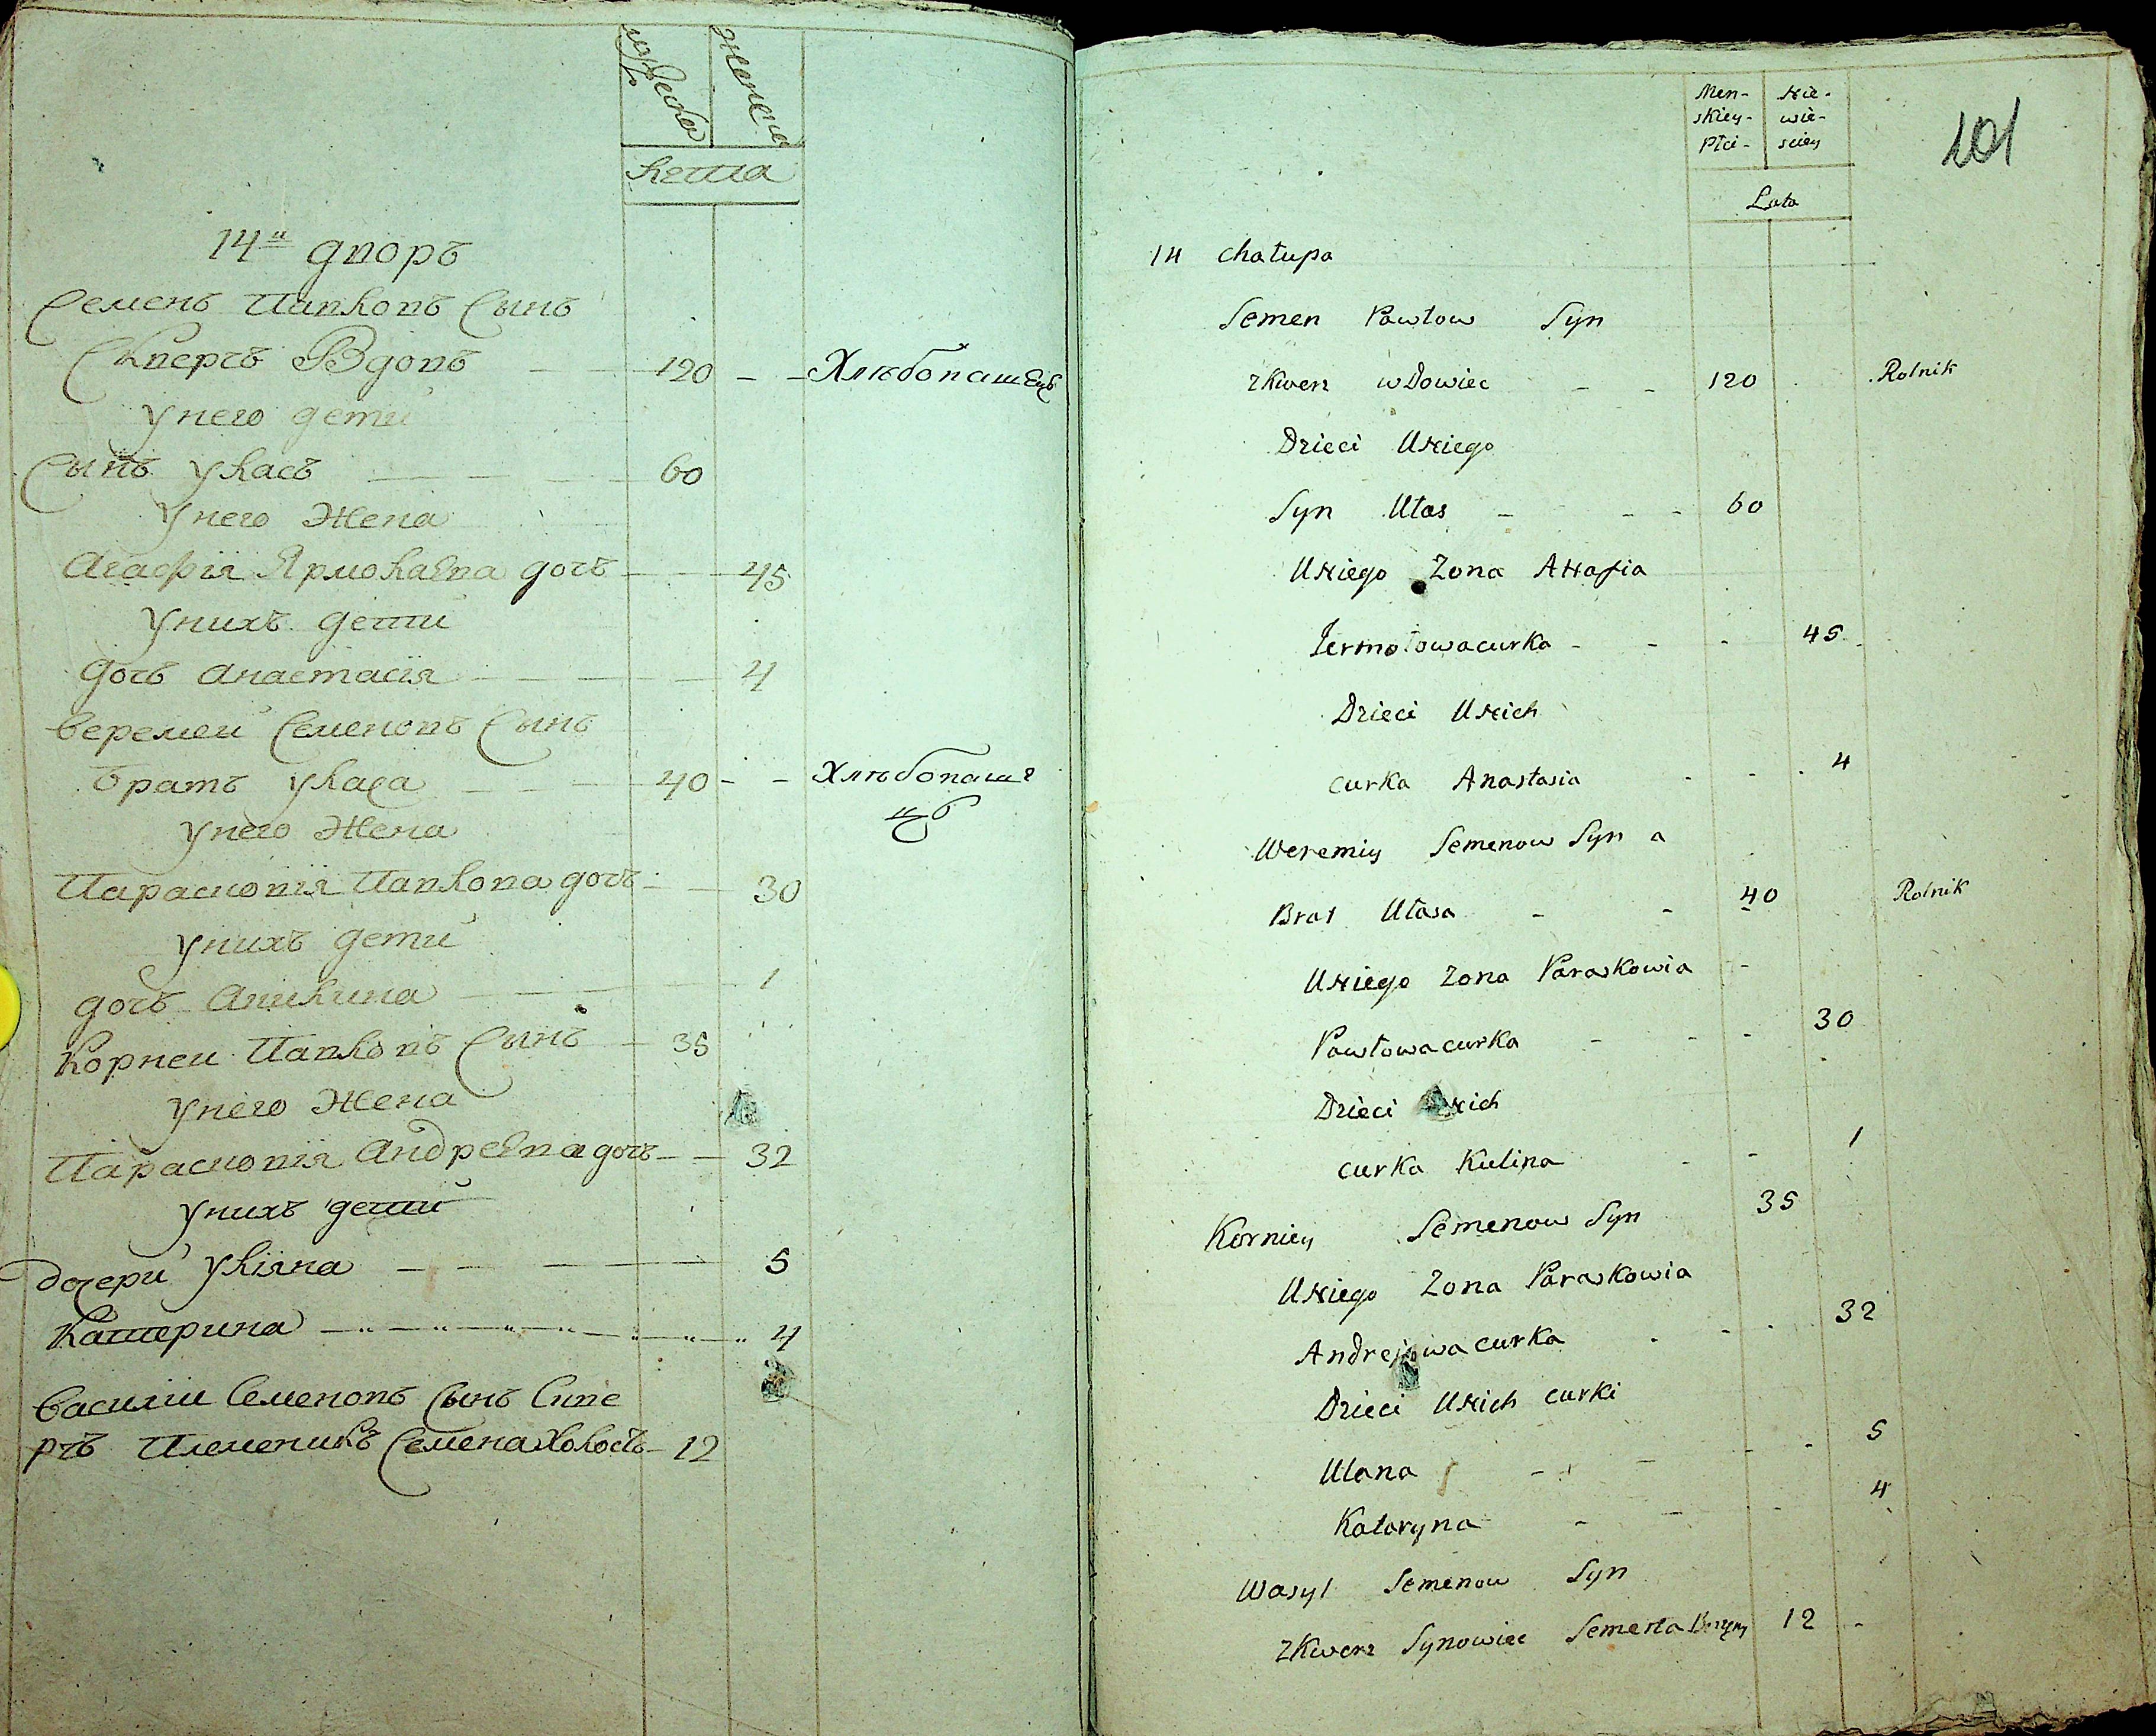 мужеска
женска
Лета
14й дворъ
Семенъ Павловъ Сынъ
Скверчъ Вдовъ 120 Хлебопашецъ
Унего дети
Сынъ Уласъ 60
Унего Жена
Агафія Ярмолаевна дочь 45
Унихъ дети
дочь Анастасія 4
Веремей Семеновъ Сынъ
братъ Уласа 40 Хлебопаше
цъ
Унего Жена
Парасковія Павлова дочь 30
Унихъ дети
дочь Акилина 1
Корней Павловъ Сынъ 35
Унего Жена
Парасковія Андреевна дочь 32
Унихъ дети
дочери Уліяна 5
Катерина 4
Василий Семеновъ Сынъ Скве
рчъ Племеникъ Семена Холостъ 12
101
Men- Nie-
skiey- wie-
Płci- sciey
Lata
14 chałupa
Semen Pawłow Syn
zKwerz wDowiec 120 Rolnik
Dzieci UNiego
Syn Ułas 60
UNiego Zona AHafia
Jermołowa curka 45
Dzieci UNich
curka Anastasia 4
Weremiy Semenow Syn a
Brat Ułasa 40 Rolnik
UNiego Zona Paraskowia
Pawłowa curka 30
Dzieci UNich
curka Kulina 1
Korniey Semenow Syn 35
UNiego Zona Paraskowia
Andrejowa curka 32
Dzieci UNich curki
Ulana 5
Kataryna 4
Wasyl Semenow Syn
zKwerz Synowiec Semena 12